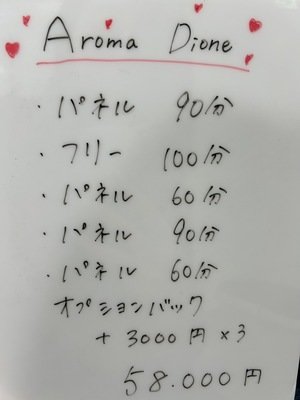 Aroma Dione
・パネル 90分
・フリー 100分
・パネル 60分
・パネル 90分
・パネル 60分
オプションバック
+ 3000円×3
58.000円